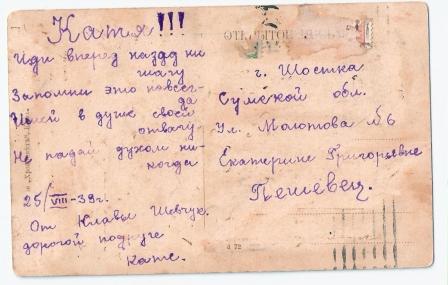 Катя!!!
Иди вперед назад ни
шагу
Запомни это навсег-
да
Имей в душе своей
отвагу.
Не падай духом ни-
когда
25/VIII-39г.
От Клавы Шевчук.
дорогой подруге
Кате.
г. Шостка
Сумской обл.
Ул. Молотова №6
Екатерине Григорьевне
Пешевец.